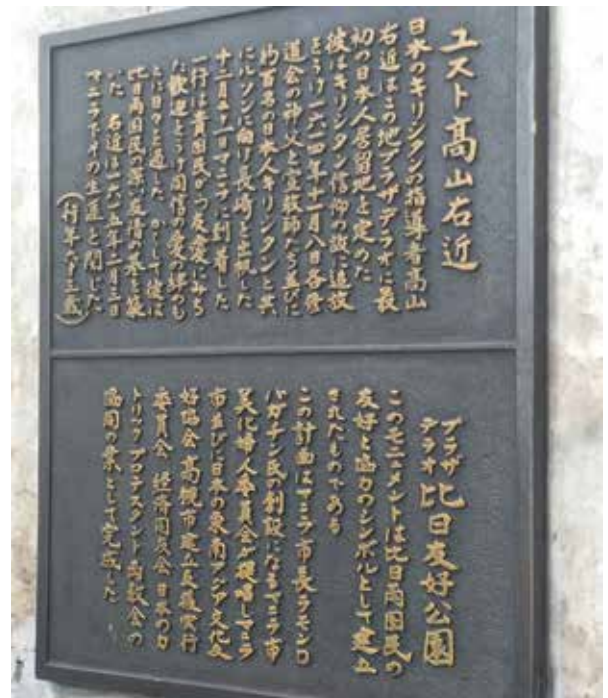 ユスト高山右近
日本のキリシタンの指導者高山
右近はこの地プラザデラオに最
初の日本人居留地を定めた
彼はキリシタン信仰の故に追放
をうけ一六一四年十一月八日各修
道会の神父と宣教師たち並びに
約百名の日本人キリシタンと共
にルソンに向け長崎を出帆した
十二月二十一日マニラに到着した
一行は貴国民がつ友愛にみち
た歓迎をうけ同信の愛の絆のも
とに日々を過した かくして彼は
比日両国民の深い友情の基を築
いた 右近は一六一五年二月三日
マニラでその生涯を閉じた
(行年六十三歳)
プラザ
デラオ 比日友好公園
このモニュメントは比日両国民の
友好と協力のシンボルとして建立
されたものである
この計画はマニラ市長ラモンロ
バガチン氏の創設になるマニラ市
美化婦人委員会が提唱しマニラ
市並びに日本の東南アジア文化友
好協会 高槻市建立支援実行
委員会 経済同友会 日本のカ
トリック プロテスタント両教会の
協同の業として完成した